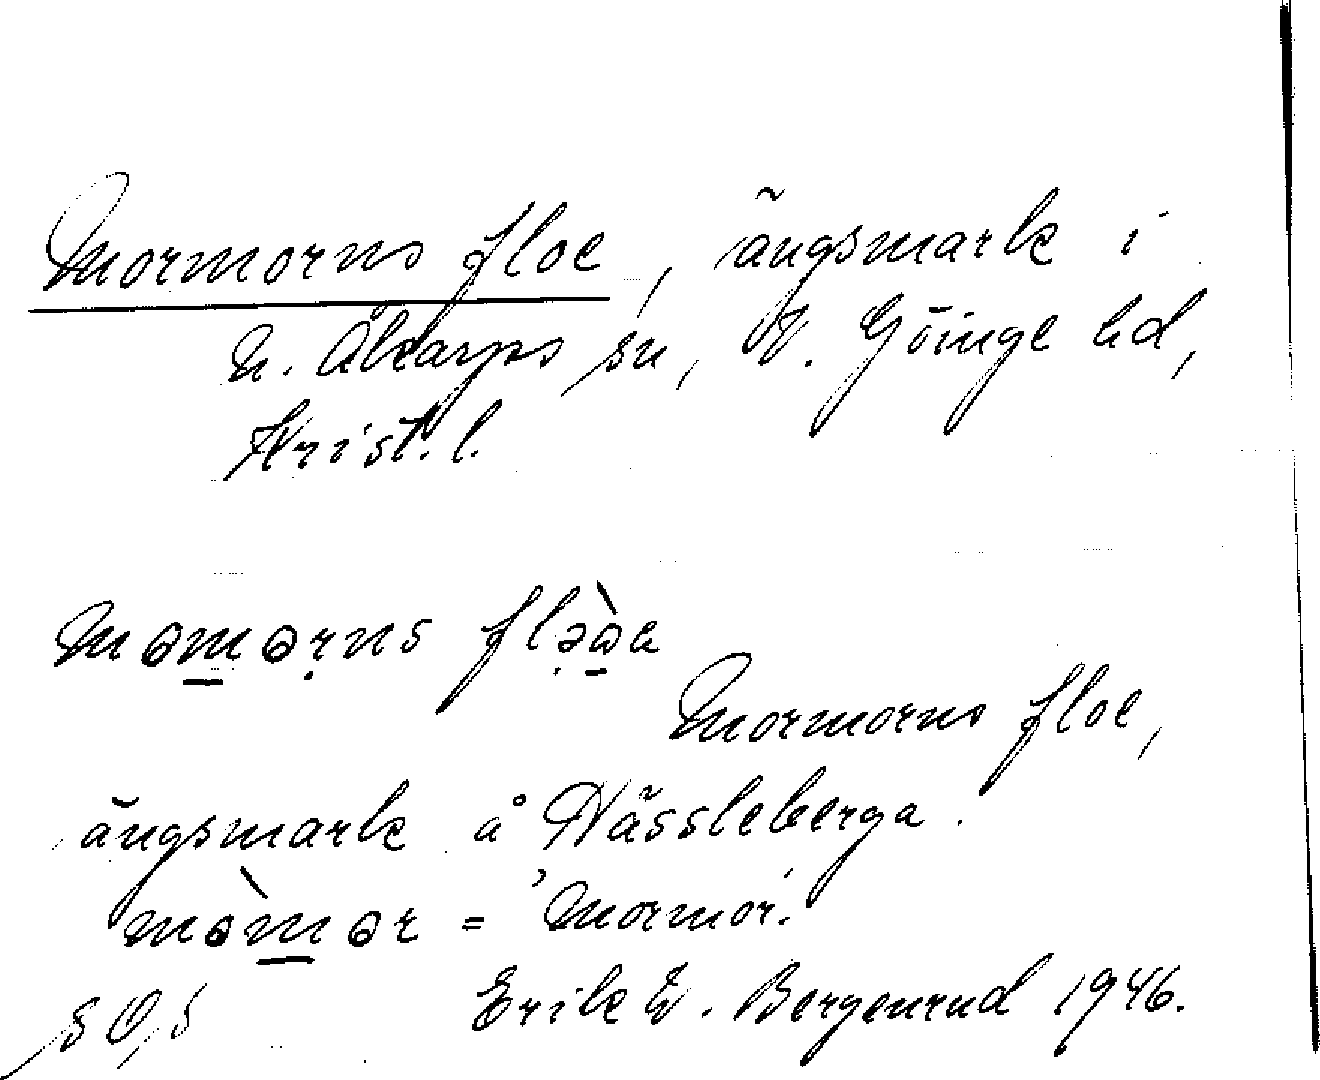 Mormorns floe, ängsmark i
N. Åkarps sn, V. Göinge hd,
Krist. l.
məmərns fləəa
Mormorns floe,
ängsmark å Nässleberga.
mə̀mər = 'Mormor'.
Erik W. Bergenrud 1946.